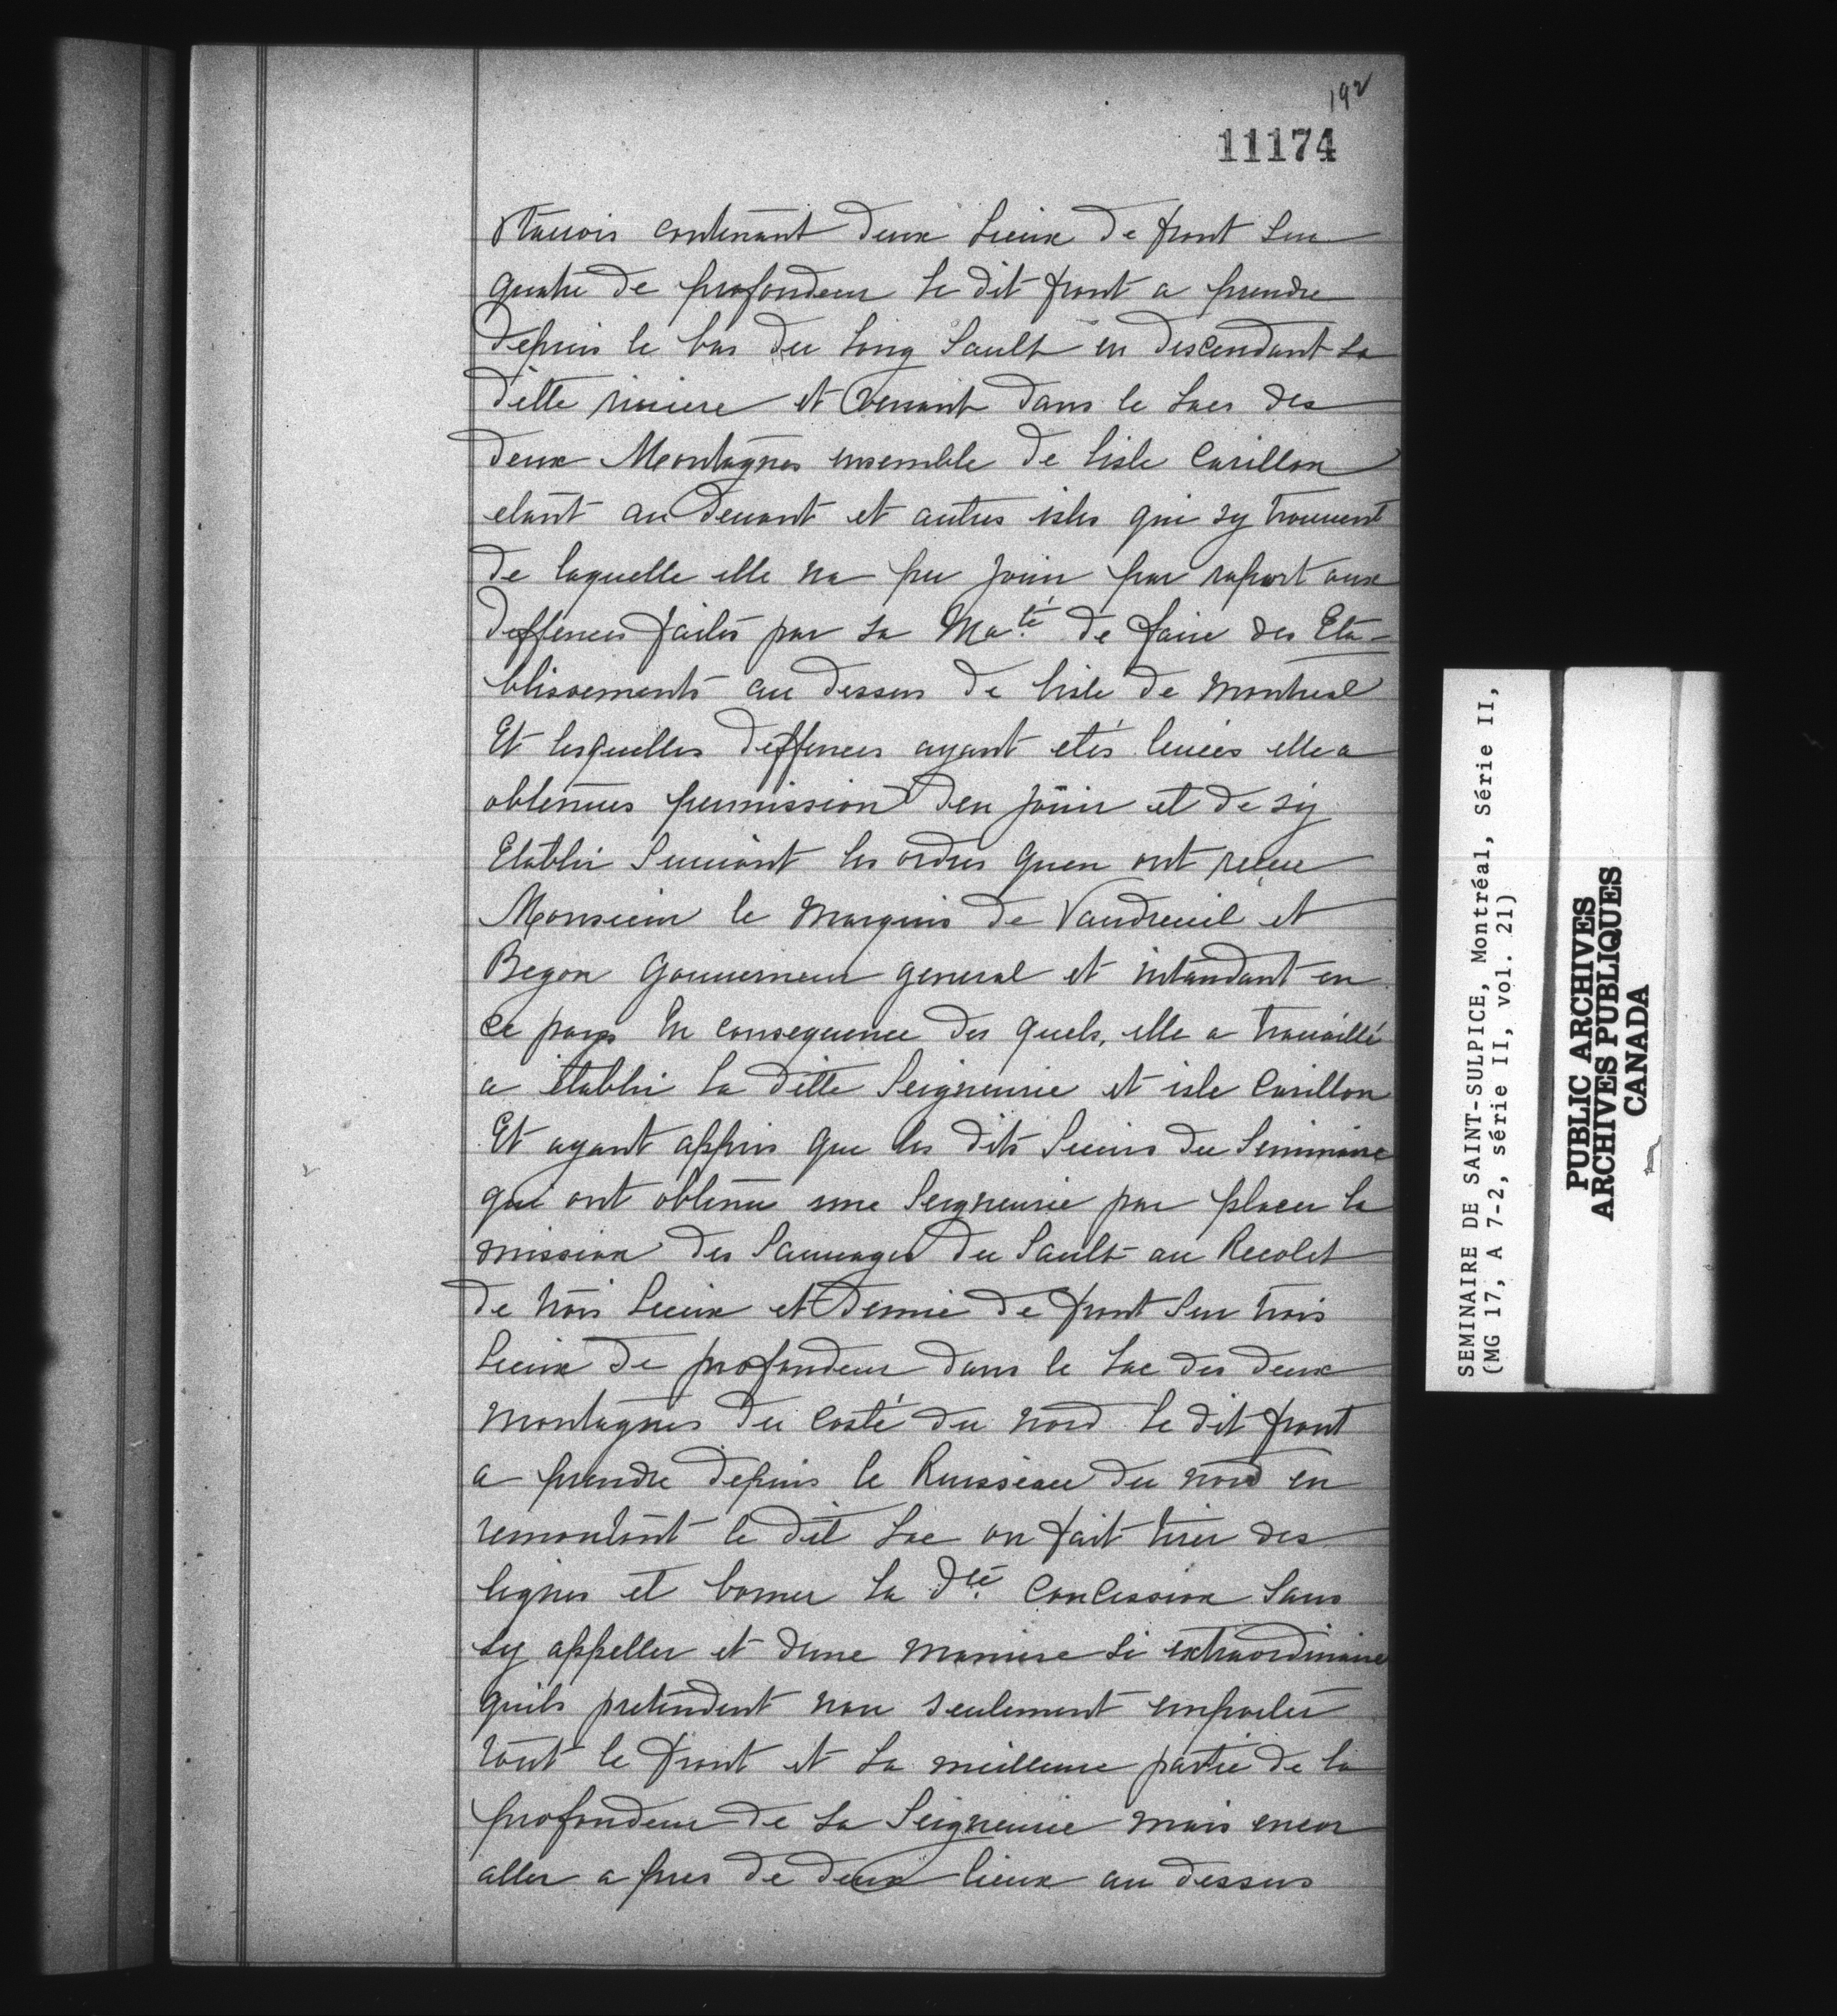 192
11174
Otauois contenant deux Lieux de front Sur
quatre de profondeur Le dit front a prendre
depuis le bas du Long Sault en descendant La
ditte riuiere et venant dans le Lacs des
deux Montagnes ensemble de Lisle Carillon
etant au deuant et autres isles qui sy trouuent
de laquelle elle na pu jouir par raport aux
deffences faites par Sa Ma.té de faire des Eta-
blissements au dessus de lisle de Montreal
Et lesquelles deffences ayant etés leuées elle a
obtenues permission den jouir et de sy
Etablir Suiuant les ordres quen ont receu
Monsieur le Marquis de Vaudreuil et
Begon Gouuerneur general et intandant en
ce pays En consequence des quels, elle a trauaillé
a établir La ditte Seigneurie et isle Carillon
Et ayant appris que les dits Sieurs du Seminaire
qui ont obtenu une Seigneurie par placer la
mission des Sauuages du Sault au Recolet
de trois Lieux et demie de front Sur trois
Lieux de profondeur dans le Lac des deux
Montagnes du costé du nord Le dit front
a prendre depuis le Ruisseau du nord en
remontant le dit Lac on fait tirer des
lignes et borner La d.te Concession Sans
Ly appeller et dune maniere Si extraordinaire
quils pretendent non seulement emporter
tout le front et La meilleure partie de la
profondeur de Sa Seigneurie mais encor
aller a pres de deux lieux au dessus
SEMINAIRE DE SAINT-SULPICE, Montréal, Série II,
(MG 17, A 7-2, série II, vol. 21)
PUBLIC ARCHIVES
ARCHIVES PUBLIQUES
CANADA